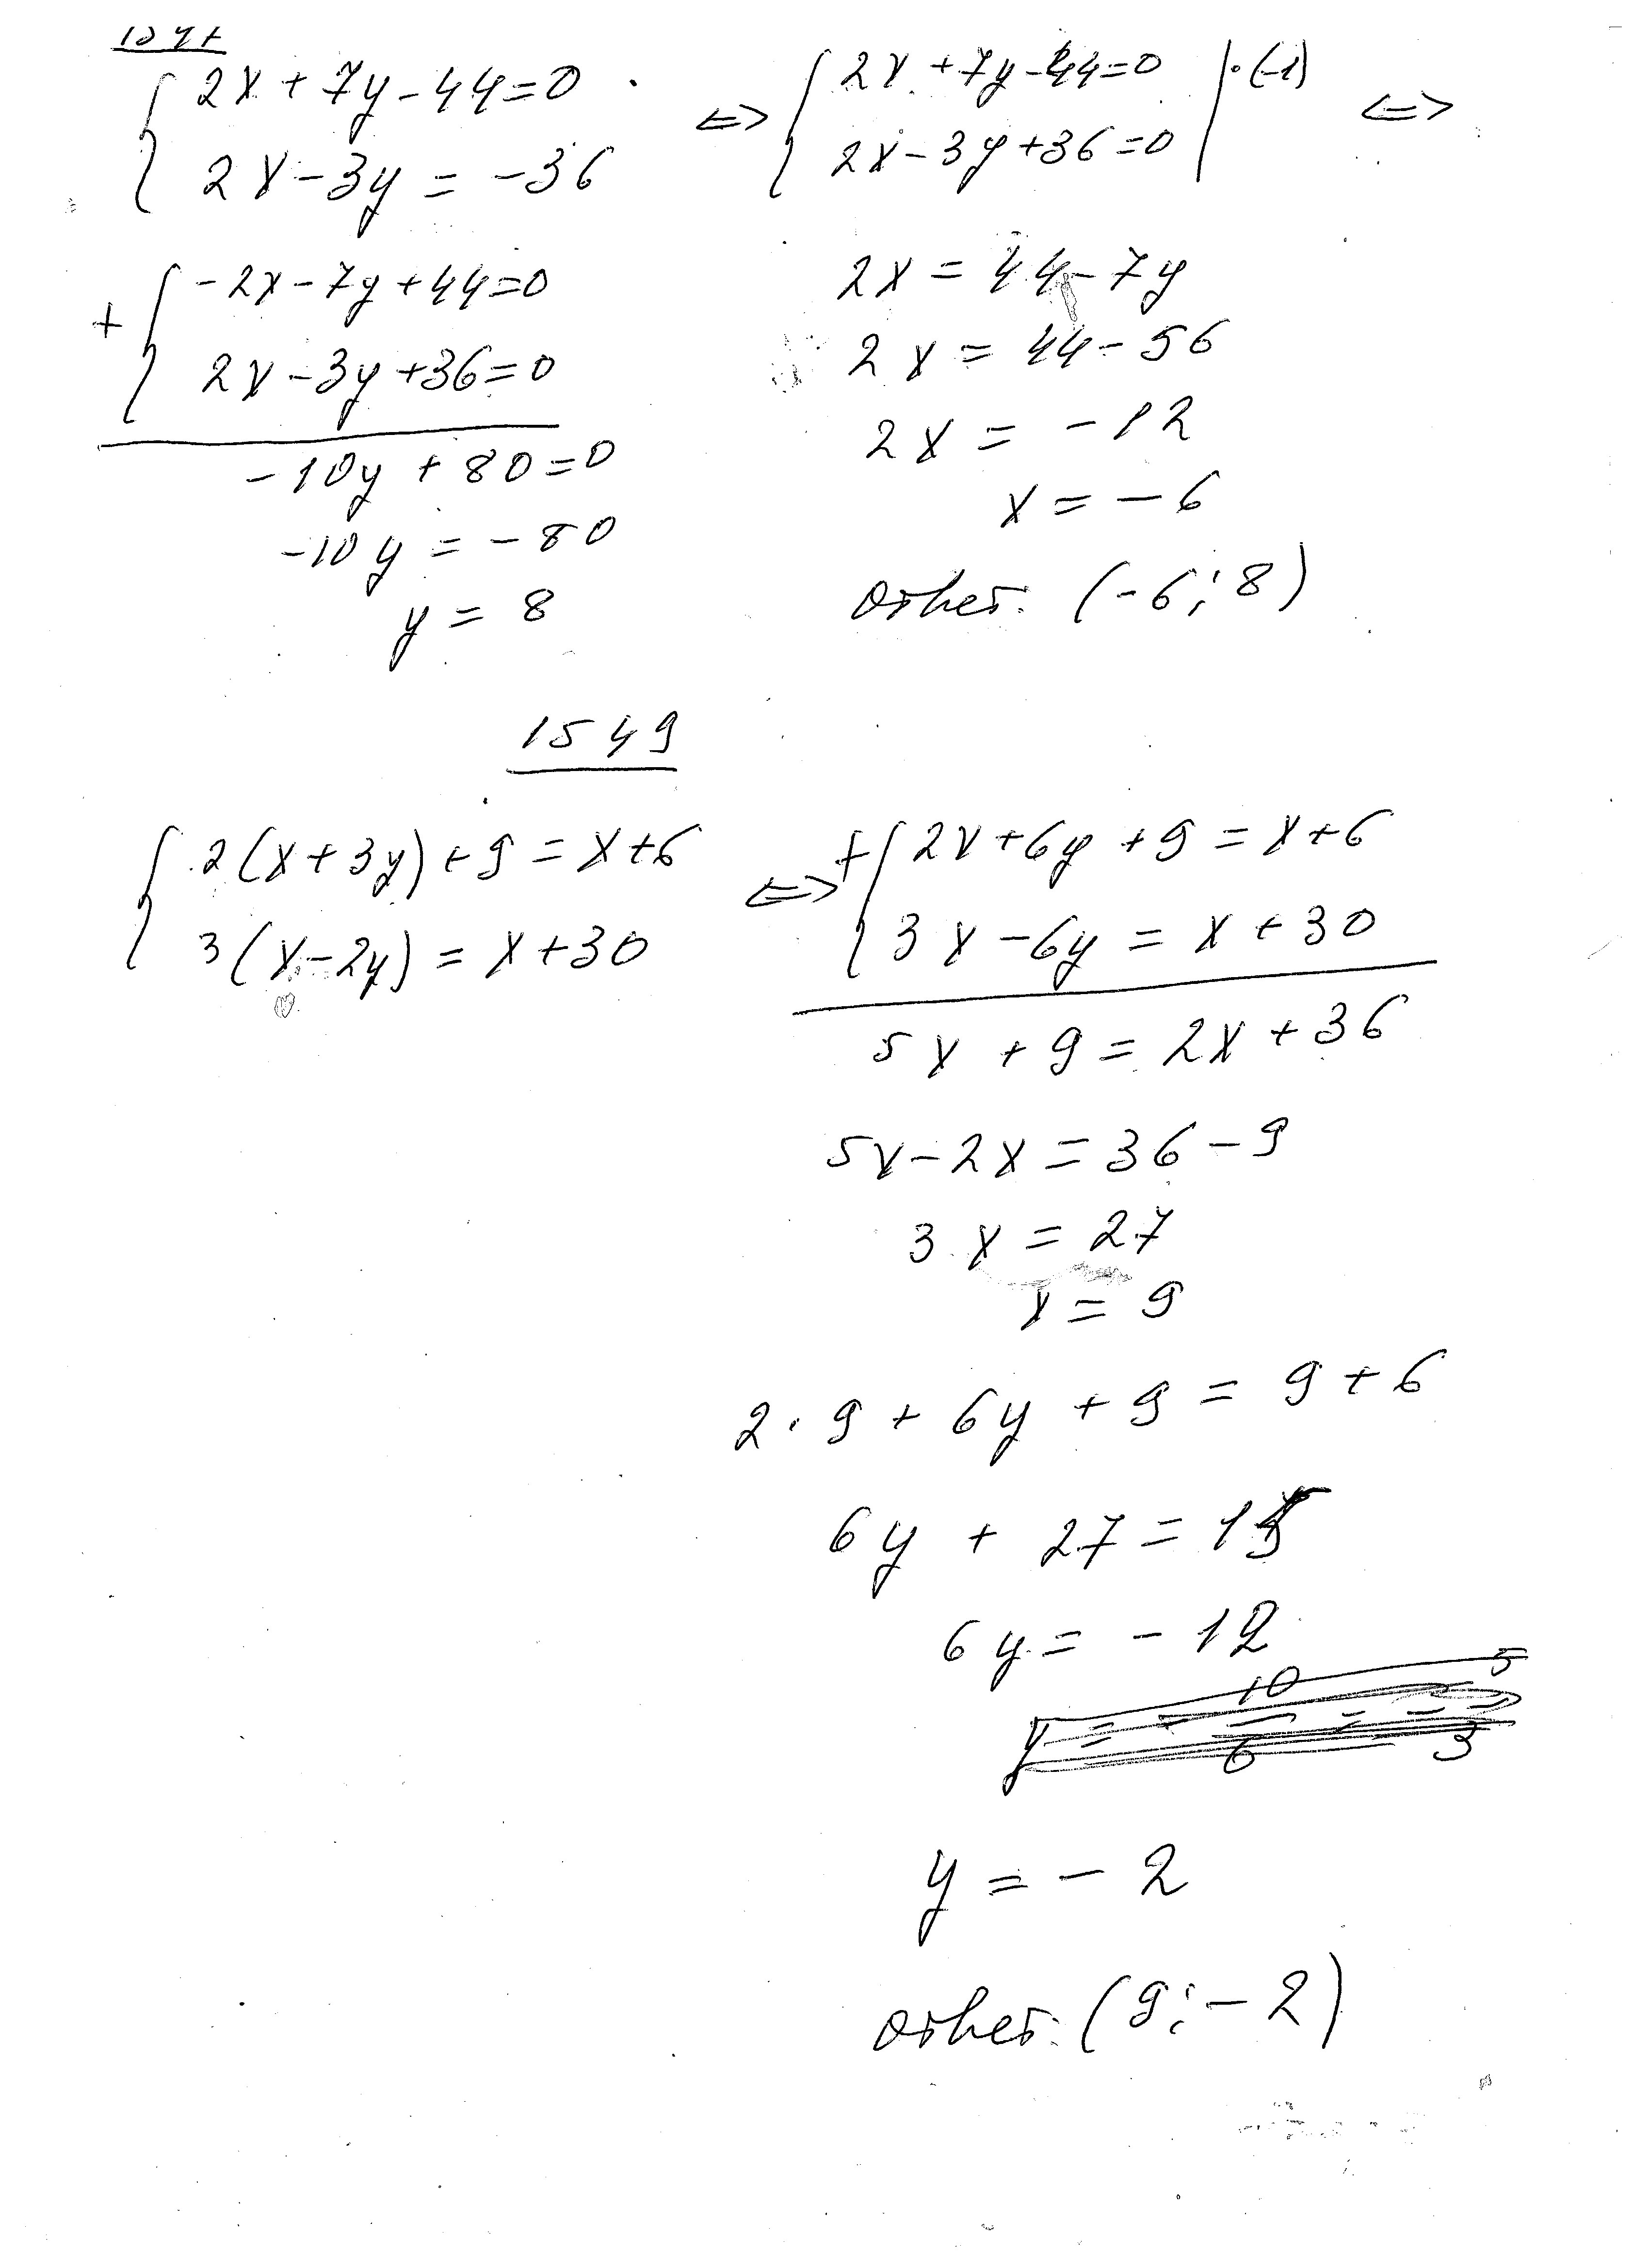 2x + 7y - 44 = 0
2x - 3y = -36
⇔
2x + 7y - 44 = 0 | · (-1)
2x - 3y + 36 = 0
⇔
+
-2x - 7y + 44 = 0
2x - 3y + 36 = 0
-10y + 80 = 0
-10y = -80
y = 8
2x = 44 - 7y
2x = 44 - 56
2x = -12
x = -6
Ответ: (-6; 8)
1549
2(x + 3y) + 9 = x + 6
3(x - 2y) = x + 30
⇔
+
2x + 6y + 9 = x + 6
3x - 6y = x + 30
5x + 9 = 2x + 36
5x - 2x = 36 - 9
3x = 27
x = 9
2 · 9 + 6y + 9 = 9 + 6
6y + 27 = 15
6y = -12
y = - 10/6 = - 5/3
y = -2
Ответ: (9; -2)